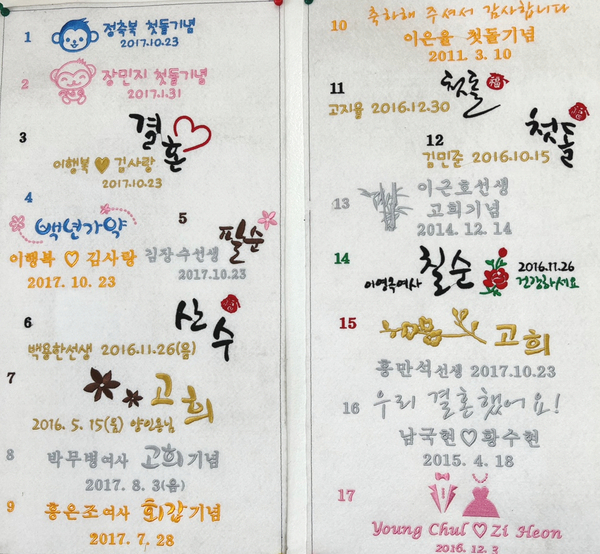 1 정축복 첫돌기념
2017.10.23
2 장민지 첫돌기념
2017.1.31
3 결혼
이행복 김사랑
2017.10.23
4 백년가약
이행복 ♡ 김사랑
2017. 10. 23
5 팔순
김장수선생
2017.10.23
6 산수
백용한선생 2016.11.26(음)
7 고희
2016. 5. 15(음) 양인용님
8 박무병여사 고희기념
2017. 8. 3(음)
9 홍은조여사 회갑기념
2017. 7. 28
10 축하해 주셔서 감사합니다
이은율 첫돌기념
2011. 3. 10
11 첫돌 福
고지율 2016.12.30
12 첫돌
김민준 2016.10.15
13 이근호선생
고희기념
2014. 12. 14
14 칠순
이영옥여사
2016.11.26
건강하세요
15 고희
홍만석선생 2017.10.23
16 우리 결혼했어요!
남국현♡황수현
2015. 4. 18
17
Young Chul ♡ Zi Heon
2016. 12. 3